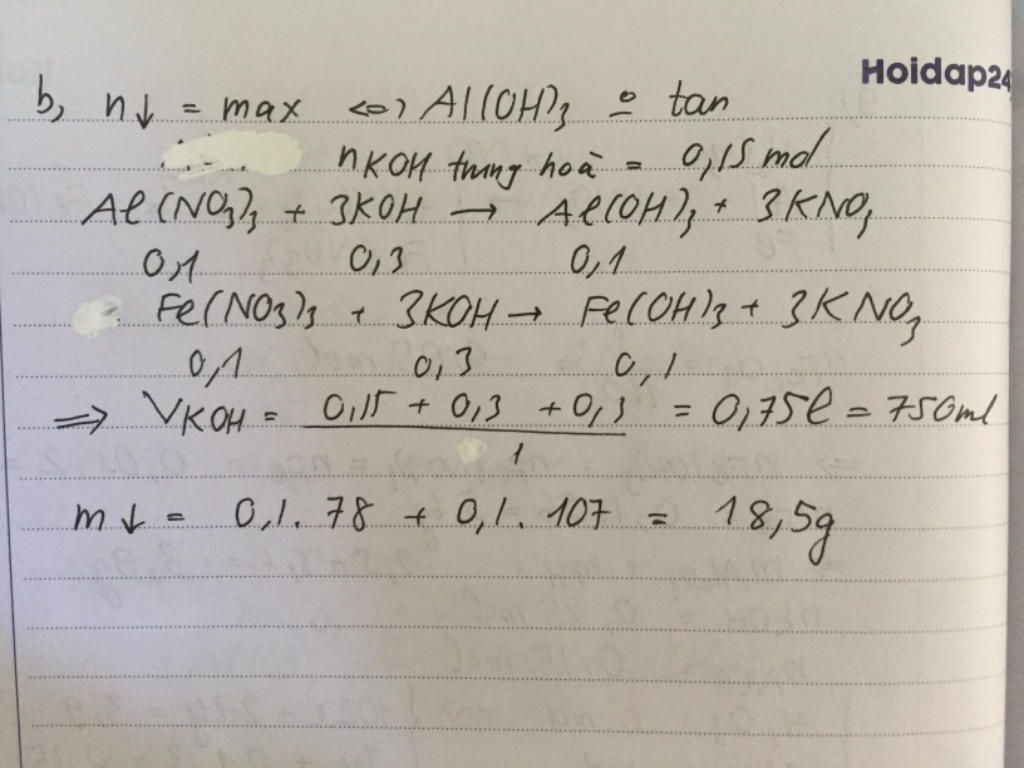 Hoidap24
b, n↓ = max <=> Al(OH)3 o tan
nKOH trung hoà = 0,15 mol
Al(NO3)3 + 3KOH → Al(OH)3 + 3KNO3
0,1 0,3 0,1
Fe(NO3)3 + 3KOH → Fe(OH)3 + 3KNO3
0,1 0,3 0,1
=> VKOH = 0,15 + 0,3 + 0,3 = 0,75l = 750ml
1
m↓ = 0,1. 78 + 0,1. 107 = 18,5g